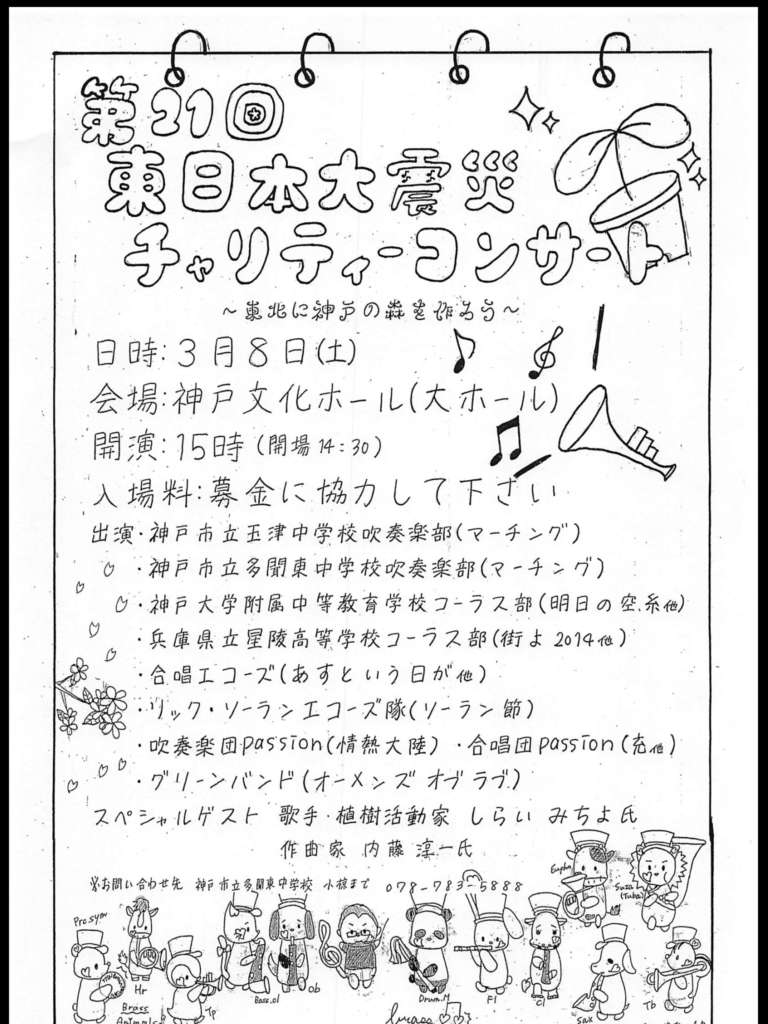 第21回
東日本大震災
チャリティーコンサート
～東北に神戸の森を作ろう～
日時:3月8日(土)
会場:神戸文化ホール(大ホール)
開演:15時(開場14:30)
入場料:募金に協力して下さい
出演・神戸市立玉津中学校吹奏楽部(マーチング)
・神戸市立多聞東中学校吹奏楽部(マーチング)
・神戸大学附属中等教育学校コーラス部(明日の空、糸他)
・兵庫県立星陵高等学校コーラス部(街よ2014他)
・合唱エコーズ(あすという日が他)
・リック・ソーランエコーズ隊(ソーラン節)
・吹奏楽団passion(情熱大陸)・合唱団passion(充他)
・グリーンバンド(オーメンズ オブ ラブ)
スペシャルゲスト 歌手・植樹活動家 しらい みちよ氏
作曲家 内藤 淳一氏
※お問い合わせ先 神戸市立多聞東中学校 小椋まで 078-783-5888
Eupho
Susa
(Tuba)
Per.sym
Hr
Brass
Animals
Tp
Bass.cl
Ob
Drum.M
Fl
Cl
Sax
Tb